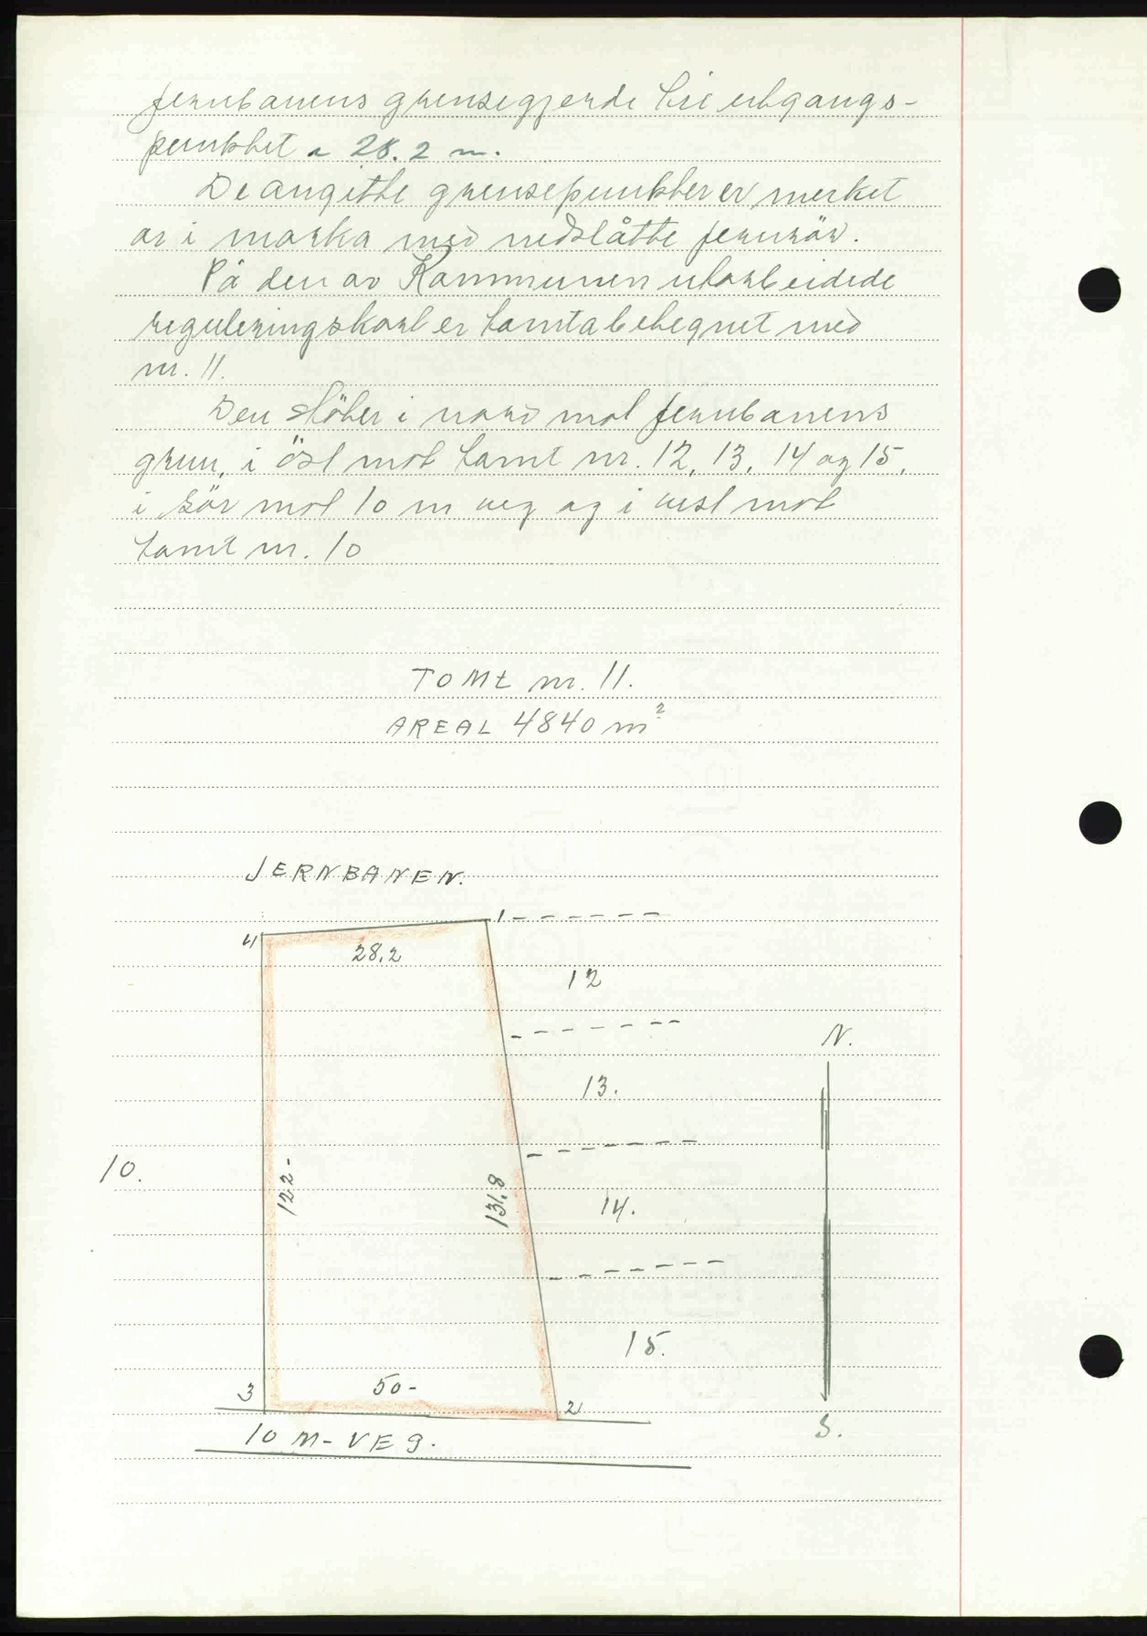 jernbanens grensegjerde til utgangs-
punktet = 28.2 m.
De angitte grensepunkter er merket
av i marka med nedslåtte jernrör.
På den av Kommunen utarbeidede
reguleringskart er tomta betegnet med
nr. 11.
Den stöter i nord mot jernbanens
grun, i öst mot tomt nr. 12, 13, 14 og 15,
i sör mot 10 m veg og i vest mot
tomt nr. 10
TOMT nr. 11.
AREAL 4840 m²
JERNBANEN.
1
4
28.2
12
N.
13.
10.
122-
131.8
14.
15.
3
50-
2
10 M-VEG.
S.